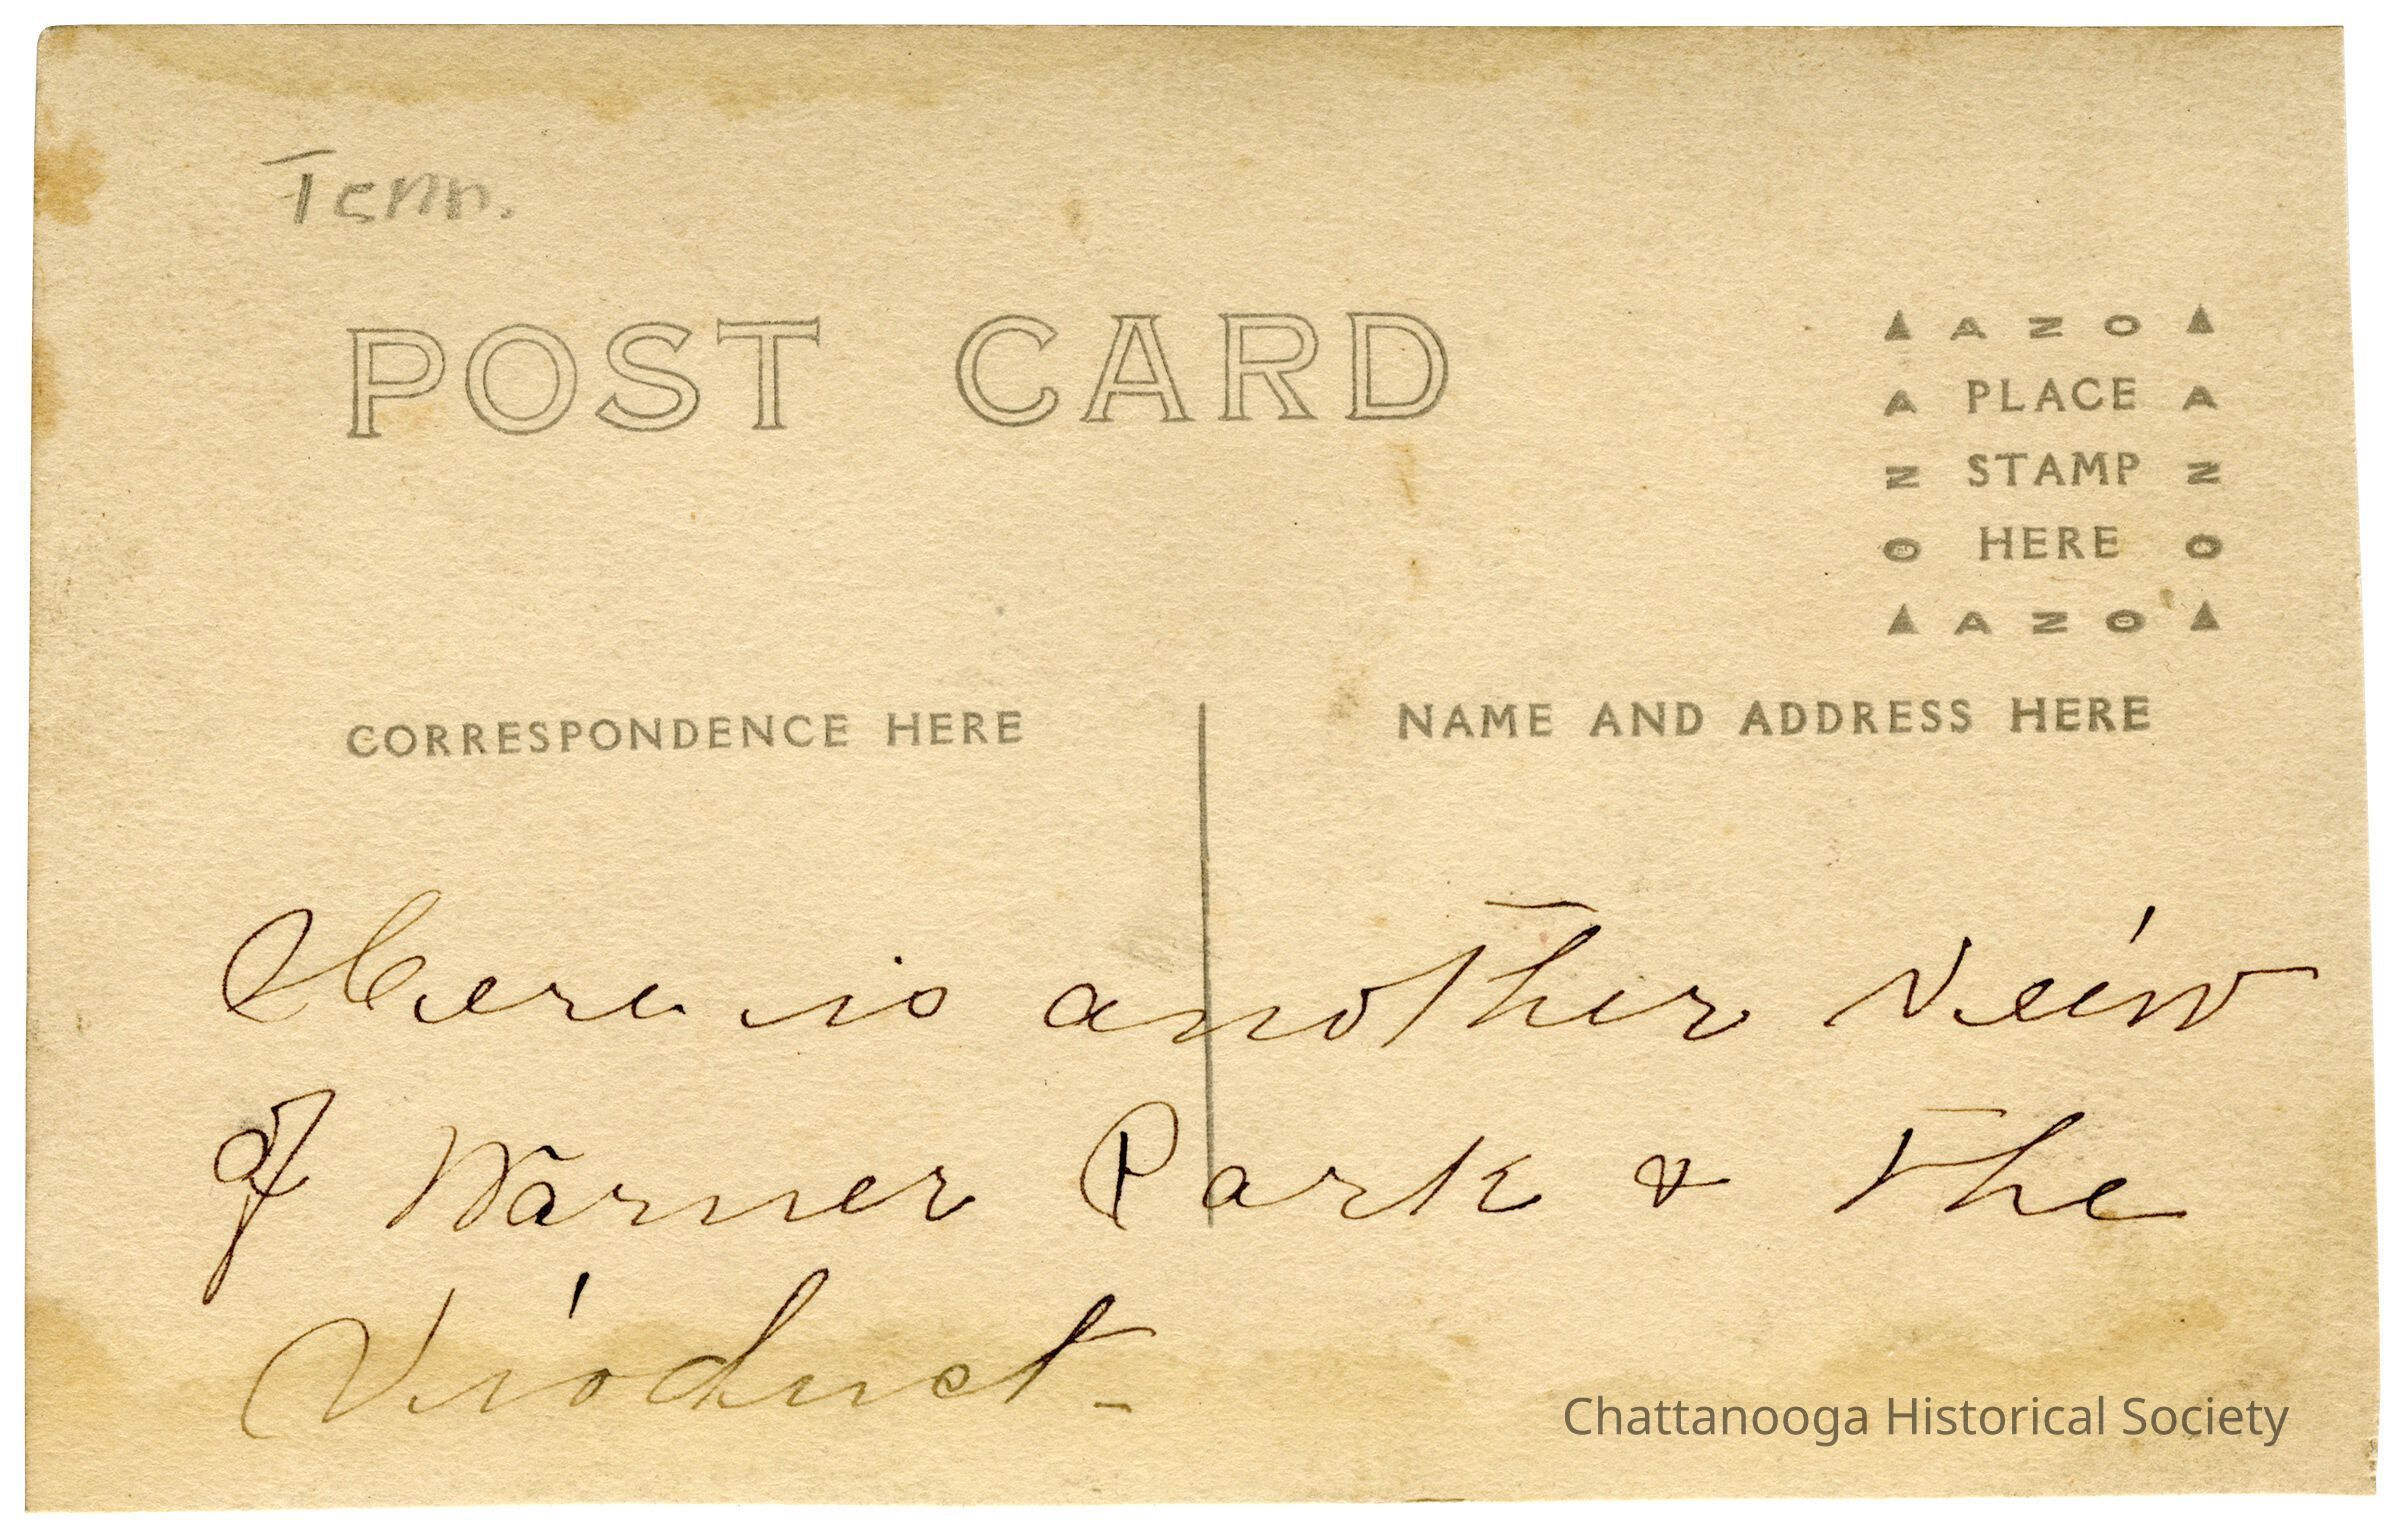 Tenn.
POST CARD
▲ A N O ▲
A PLACE A
N STAMP N
O HERE O
▲ A N O ▲
CORRESPONDENCE HERE
NAME AND ADDRESS HERE
Here is another veiw
of Warner Park & the
Vioduct -
Chattanooga Historical Society